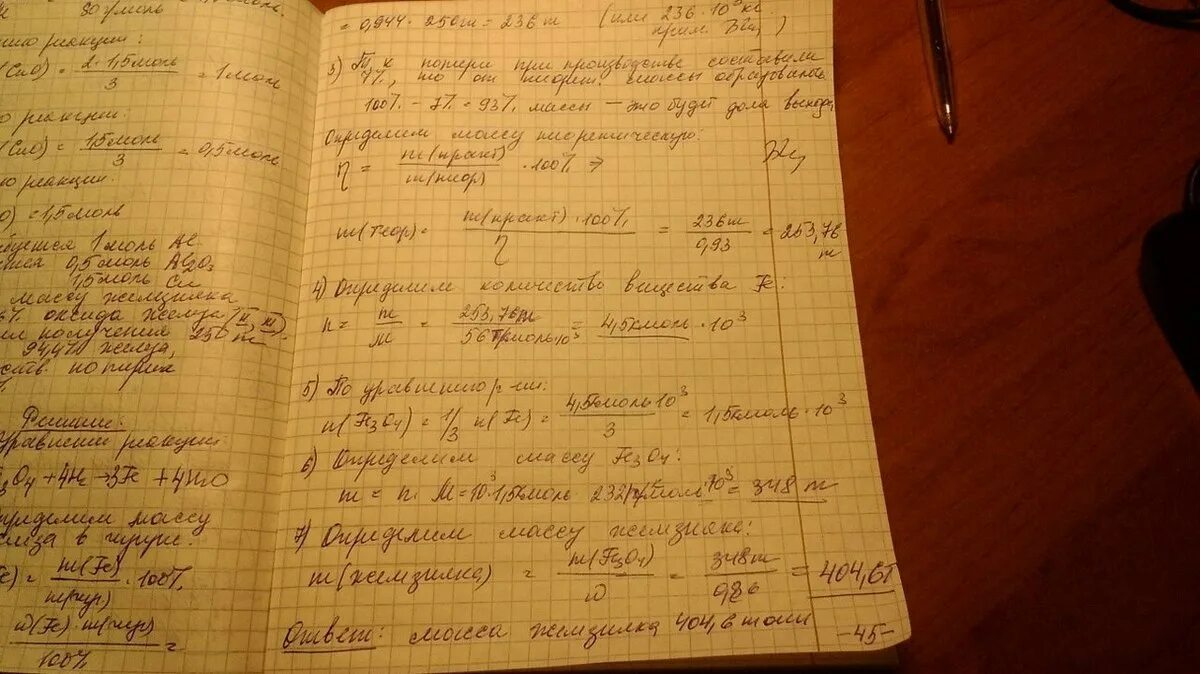 80 г/моль
нию реакции:
(CuO) = 2 · 1,5моль / 3 = 1 моль
о реакции.
(CuO) = 1,5моль / 3 = 0,5 моль
ю реакции.
) = 1,5 моль
буется 1 моль Al
0,5 моль Al2O3
1,5 моль Cu
массу железняка
% оксида железа
получения 250 т
94,4% железа,
Решение:
Уравнение реакции:
3O4 + 4H2 → 3Fe + 4H2O
пределим массу
леза в чугуне:
Fe) = m(Fe) / m(чуг) · 100%
ω(Fe) · m(чуг) / 100% =
= 0,944 · 250т = 236 т (или 236 · 10³ кг
прим. )
3) Т. к потери при производстве составили
7%, то от теорет. массы образовалось
100% - 7% = 93% массы – это будет доля выхода
Определим массу теоретическую:
η = m(практ) / m(теор) · 100% ⇒
m(теор) = m(практ) · 100% / η = 236т / 0,93 = 253,76 т
4) Определим количество вещества Fe:
n = m / M = 253,76т / 56 моль·10³ = 4,5кмоль · 10³
5) По уравнению р-ии:
n(Fe3O4) = 1/3 n(Fe) = 4,5кмоль·10³ / 3 = 1,5кмоль · 10³
6) Определим массу Fe3O4:
m = n · M = 10³ · 1,5кмоль · 232 моль · 10³ = 348 т
7) Определим массу железняка:
m(железняка) = m(Fe3O4) / ω = 348т / 0,86 = 404,6т
Ответ: масса железняка 404,6 тонн
-45-